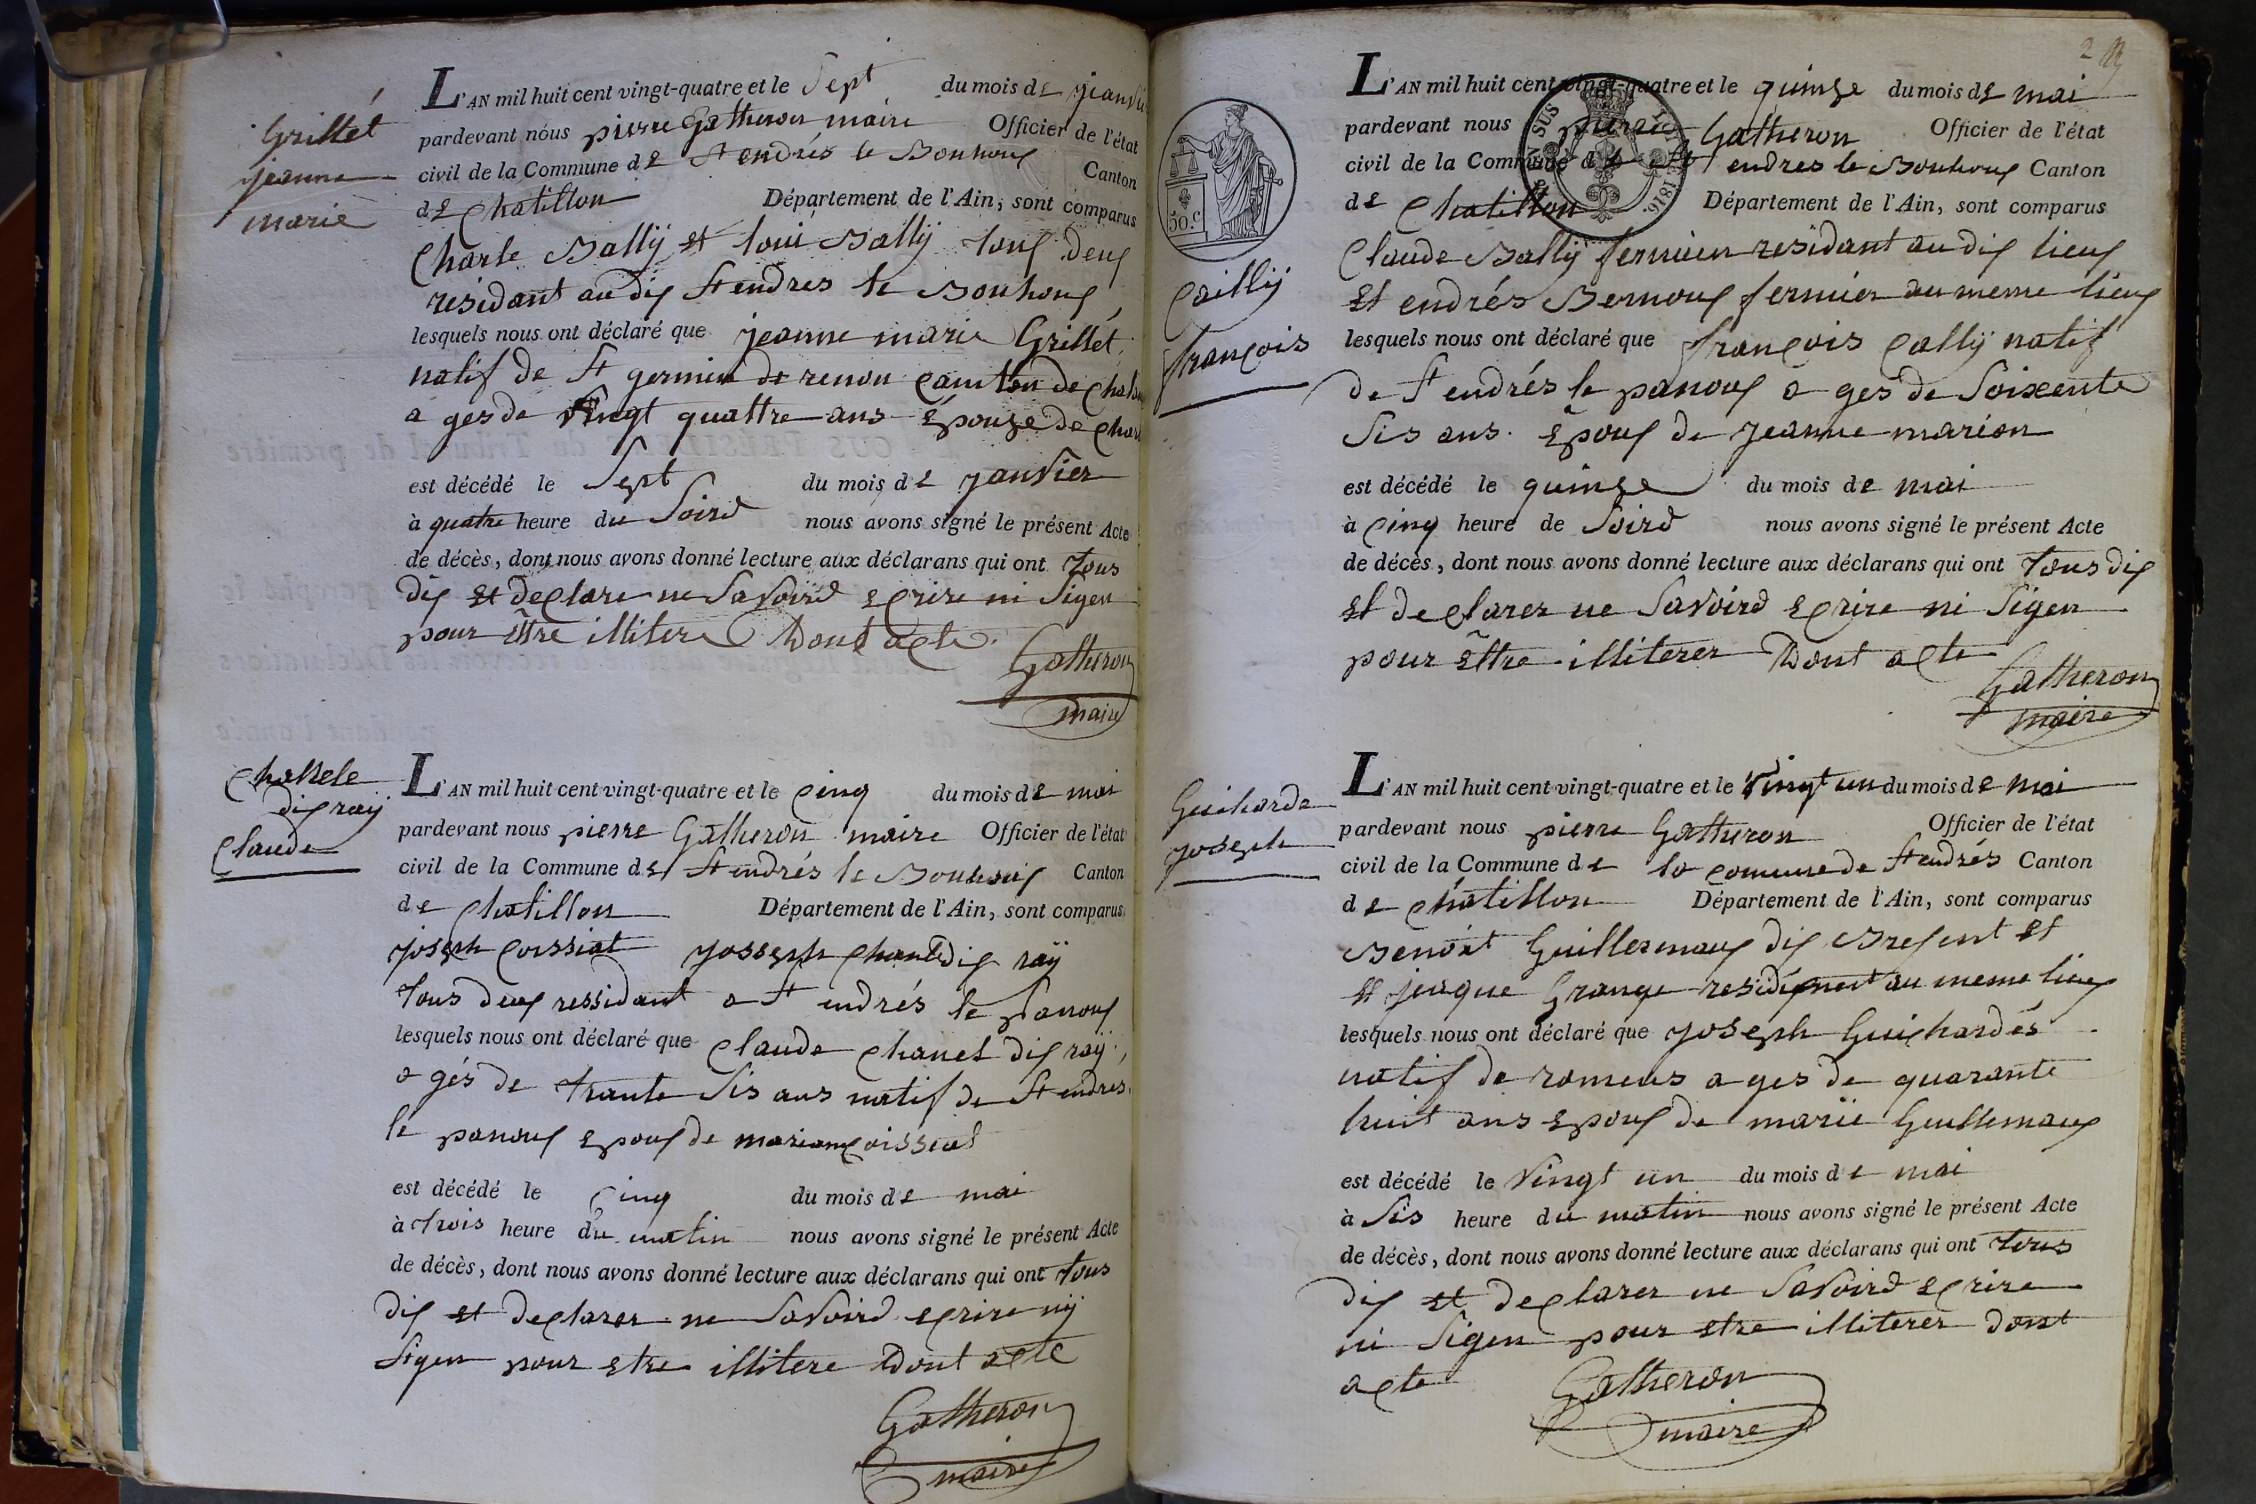 Grillet
jeanne
marie
L'AN mil huit cent vingt-quatre et le Sept du mois de janvie
pardevant nous pierre Gatheron maire Officier de l'état
civil de la Commune de St endrés le Bouhoux Canton
de Chatillon Département de l'Ain, sont comparus
Charle Bally et loui Bally tous deux
residant au dis St endres le Bouhoux
lesquels nous ont déclaré que jeanne marie Grillet
natif de St germein de renon canton de
a ges de vingt quattre ans épouse de
est décédé le Sept du mois de janvier
à quatre heure du Soird nous avons signé le présent Acte
de décès, dont nous avons donné lecture aux déclarans qui ont tous
dis et declare ne Savoird ecrire ni Sigen
pour être illitere Dont acte
Gatheron
maire
dis raÿ
Claude
L'AN mil huit cent vingt-quatre et le Cinq du mois de mai
pardevant nous pierre Gatheron maire Officier de l'état
civil de la Commune de St endrés le Canton
de Chatillon Département de l'Ain, sont comparus
joseph Cossiat josseph dis raÿ
tous deux ressidant a St endrés le panoux
lesquels nous ont déclaré que Claude Chanel dis raÿ
a gés de trante Sis ans natif de St endres
le panoux epoux de
est décédé le Cinq du mois de mai
à trois heure du matin nous avons signé le présent Acte
de décès, dont nous avons donné lecture aux déclarans qui ont tous
dis et declarer ne Savoird ecrire nÿ
Sigen pour etre illitere Dont acte
Gatheron
maire
2
50.c
Cailly
françois
L'AN mil huit cent vingt-quatre et le quinze du mois de mai
pardevant nous pierre Gatheron Officier de l'état
civil de la Commune de St endres le Bouhoux Canton
de Chatillon Département de l'Ain, sont comparus
Claude Bally fermier residant au dis lieux
et endrés Bernoux fermier au meme lieux
lesquels nous ont déclaré que françois Cally natif
de St endrés le panoux a ges de Soixente
Sis ans epoux de jeanne marion
est décédé le quinze du mois de mai
à Cinq heure de Soird nous avons signé le présent Acte
de décès, dont nous avons donné lecture aux déclarans qui ont tous dis
et declarer ne Savoird ecrire ni Sigen
pour être illiterer Dont acte
Gatheron
maire
Guicharde
joseph
L'AN mil huit cent vingt-quatre et le vingt un du mois de mai
pardevant nous pierre Gatheron Officier de l'état
civil de la Commune de la comune de St endrés Canton
de Chatillon Département de l'Ain, sont comparus
Benoit Guillermaux dis Bresent et
et jaque Grange au meme lieux
lesquels nous ont déclaré que joseph Guichardés
natif de romens a ges de quarante
huit ans epoux de marie Guillemaux
est décédé le Vingt un du mois de mai
à Sis heure du matin nous avons signé le présent Acte
de décès, dont nous avons donné lecture aux déclarans qui ont tous
dis et declarer ne Savoird ecrire
ni Sigen pour etre illiterer dont
acte
Gatheron
maire